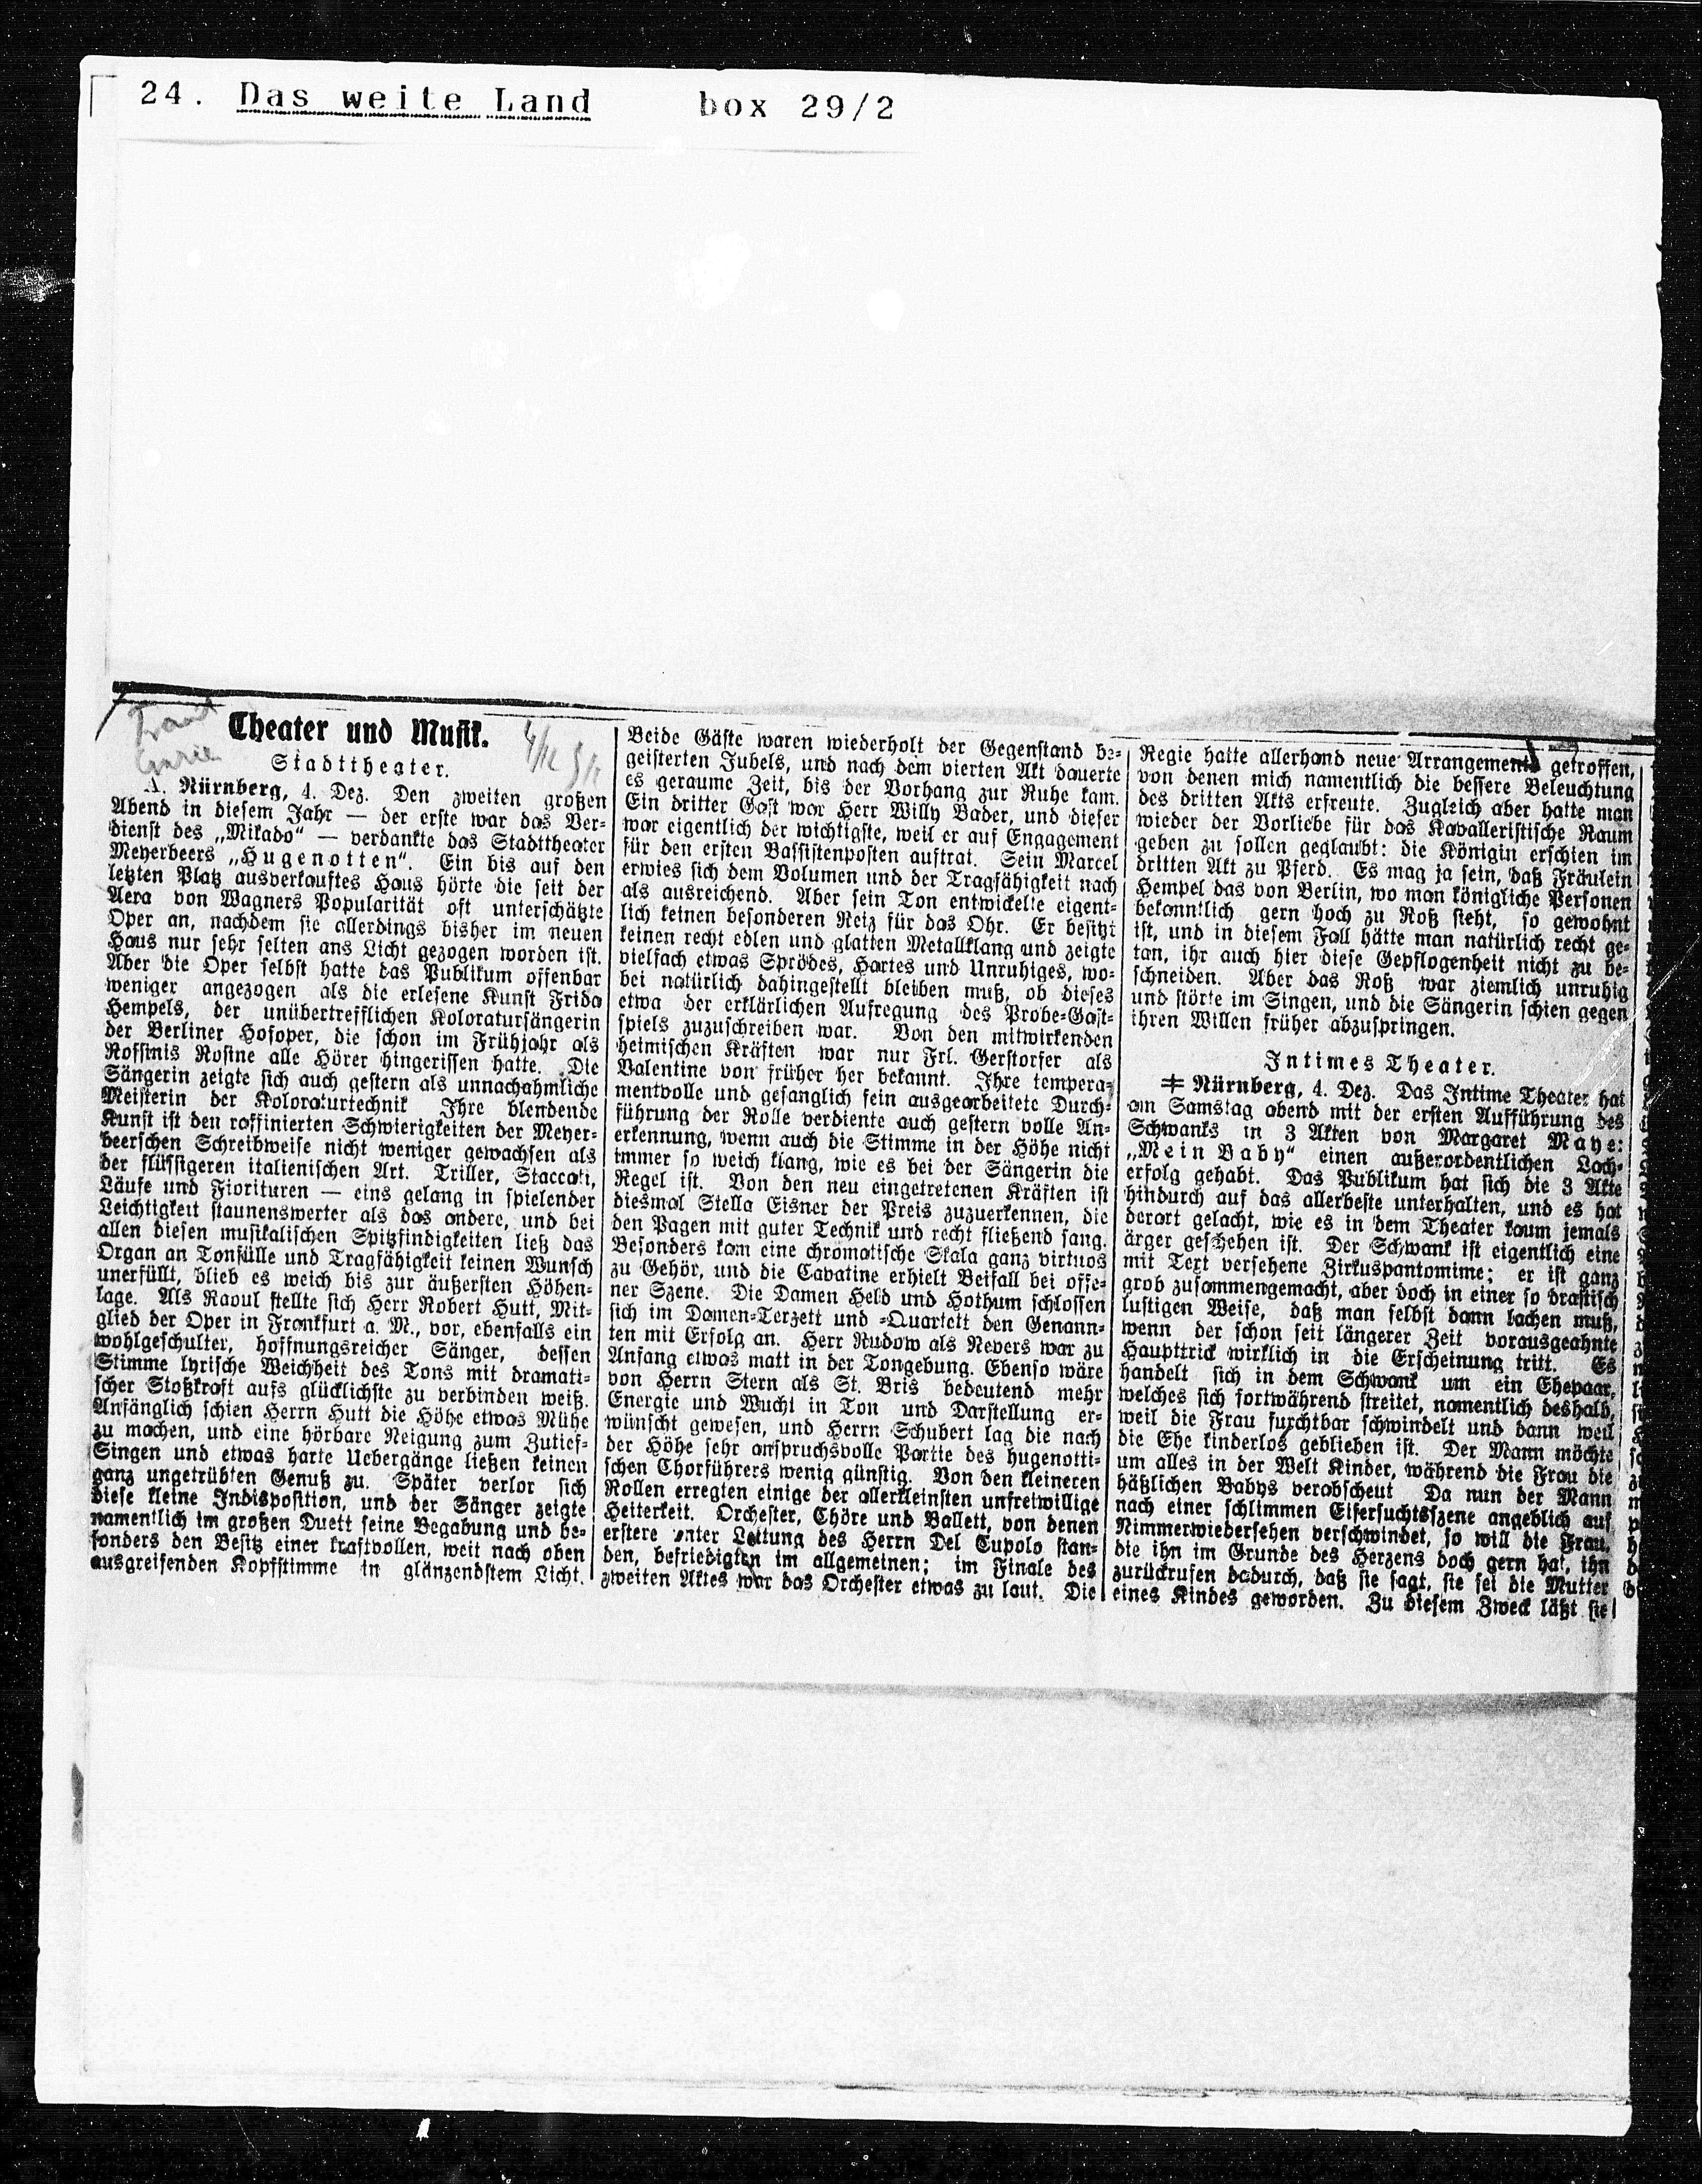 24. Das weite Land box 29/2
Theater und Musik.
Stadttheater.
A. Nürnberg, 4. Dez. Den zweiten großen
Abend in diesem Jahr — der erste war das Ver-
dienst des „Mikado“ — verdankte das Stadttheater
Meyerbeers „Hugenotten“. Ein bis auf den
letzten Platz ausverkauftes Haus hörte die seit der
Aera von Wagners Popularität oft unterschätzte
Oper an, nachdem sie allerdings bisher im neuen
Haus nur sehr selten ans Licht gezogen worden ist.
Aber die Oper selbst hatte das Publikum offenbar
weniger angezogen als die erlesene Kunst Frida
Hempels, der unübertrefflichen Koloratursängerin
der Berliner Hofoper, die schon im Frühjahr als
Rossinis Rosine alle Hörer hingerissen hatte. Die
Sängerin zeigte sich auch gestern als unnachahmliche
Meisterin der Koloraturtechnik Ihre blendende
Kunst ist den raffinierten Schwierigkeiten der Meyer-
beerschen Schreibweise nicht weniger gewachsen als
der flüssigeren italienischen Art. Triller, Staccati,
Läufe und Fiorituren — eins gelang in spielender
Leichtigkeit staunenswerter als das andere, und bei
allen diesen musikalischen Spitzfindigkeiten ließ das
Organ an Tonfülle und Tragfähigkeit keinen Wunsch
unerfüllt, blieb es weich bis zur äußersten Höhen-
lage. Als Raoul stellte sich Herr Robert Hutt, Mit-
glied der Oper in Frankfurt a. M., vor, ebenfalls ein
wohlgeschulter, hoffnungsreicher Sänger, dessen
Stimme lyrische Weichheit des Tons mit dramati-
scher Stoßkraft aufs glücklichste zu verbinden weiß.
Anfänglich schien Herrn Hutt die Höhe etwas Mühe
zu machen, und eine hörbare Neigung zum Zutief-
Singen und etwas harte Uebergänge ließen keinen
ganz ungetrübten Genuß zu. Später verlor sich
diese kleine Indisposition, und der Sänger zeigte
namentlich im großen Duett seine Begabung und be-
sonders den Besitz einer kraftvollen, weit nach oben
ausgreifenden Kopfstimme in glänzendstem Licht.
Beide Gäste waren wiederholt der Gegenstand be-
geisterten Jubels, und nach dem vierten Akt dauerte
es geraume Zeit, bis der Vorhang zur Ruhe kam.
Ein dritter Gast war Herr Willy Bader, und dieser
war eigentlich der wichtigste, weil er auf Engagement
für den ersten Bassistenposten auftrat. Sein Marcel
erwies sich dem Volumen und der Tragfähigkeit nach
als ausreichend. Aber sein Ton entwickelte eigent-
lich keinen besonderen Reiz für das Ohr. Er besitzt
keinen recht edlen und glatten Metallklang und zeigte
vielfach etwas Sprödes, Hartes und Unruhiges, wo-
bei natürlich dahingestellt bleiben muß, ob dieses
etwa der erklärlichen Aufregung des Probe-Gast-
spiels zuzuschreiben war. Von den mitwirkenden
heimischen Kräften war nur Frl. Gerstorfer als
Valentine von früher her bekannt. Ihre tempera-
mentvolle und gesanglich fein ausgearbeitete Durch-
führung der Rolle verdiente auch gestern volle An-
erkennung, wenn auch die Stimme in der Höhe nicht
immer so weich klang, wie es bei der Sängerin die
Regel ist. Von den neu eingetretenen Kräften ist
diesmal Stella Eisner der Preis zuzuerkennen, die
den Pagen mit guter Technik und recht fließend sang.
Besonders kam eine chromatische Skala ganz virtuos
zu Gehör, und die Cavatine erhielt Beifall bei offe-
ner Szene. Die Damen Held und Hothum schlossen
sich im Damen-Terzett und -Quartett den Genann-
ten mit Erfolg an. Herr Rudow als Nevers war zu
Anfang etwas matt in der Tongebung. Ebenso wäre
von Herrn Stern als St. Bris bedeutend mehr
Energie und Wucht in Ton und Darstellung er-
wünscht gewesen, und Herrn Schubert lag die nach
der Höhe sehr anspruchsvolle Partie des hugenotti-
schen Chorführers wenig günstig. Von den kleineren
Rollen erregten einige der allerkleinsten unfreiwillige
Heiterkeit. Orchester, Chöre und Ballett, von denen
erstere unter Leitung des Herrn Del Cupolo stan-
den, befriedigten im allgemeinen; im Finale des
zweiten Aktes war das Orchester etwas zu laut. Die
Regie hatte allerhand neue Arrangements getroffen,
von denen mich namentlich die bessere Beleuchtung
des dritten Akts erfreute. Zugleich aber hatte man
wieder der Vorliebe für das Kavalleristische Raum
geben zu sollen geglaubt: die Königin erschien im
dritten Akt zu Pferd. Es mag ja sein, daß Fräulein
Hempel das von Berlin, wo man königliche Personen
bekanntlich gern hoch zu Roß sieht, so gewohnt
ist, und in diesem Fall hätte man natürlich recht ge-
tan, ihr auch hier diese Gepflogenheit nicht zu be-
schneiden. Aber das Roß war ziemlich unruhig
und störte im Singen, und die Sängerin schien gegen
ihren Willen früher abzuspringen.
Intimes Theater.
Nürnberg, 4. Dez. Das Intime Theater hat
am Samstag abend mit der ersten Aufführung des
Schwanks in 3 Akten von Margaret Maye:
„Mein Baby“ einen außerordentlichen Lach-
erfolg gehabt. Das Publikum hat sich die 3 Akte
hindurch auf das allerbeste unterhalten, und es hat
derart gelacht, wie es in dem Theater kaum jemals
ärger geschehen ist. Der Schwank ist eigentlich eine
mit Text versehene Zirkuspantomime; er ist ganz
grob zusammengemacht, aber doch in einer so drastisch
lustigen Weise, daß man selbst dann lachen muß,
wenn der schon seit längerer Zeit vorausgeahnte
Haupttrick wirklich in die Erscheinung tritt. Es
handelt sich in dem Schwank um ein Ehepaar,
welches sich fortwährend streitet, namentlich deshalb,
weil die Frau furchtbar schwindelt und dann weil
die Ehe kinderlos geblieben ist. Der Mann möchte
um alles in der Welt Kinder, während die Frau die
häßlichen Babys verabscheut Da nun der Mann
nach einer schlimmen Eifersuchtsszene angeblich auf
Nimmerwiedersehen verschwindet, so will die Frau,
die ihn im Grunde des Herzens doch gern hat, ihn
zurückrufen dadurch, daß sie sagt, sie sei die Mutter
eines Kindes geworden. Zu diesem Zweck läßt sie